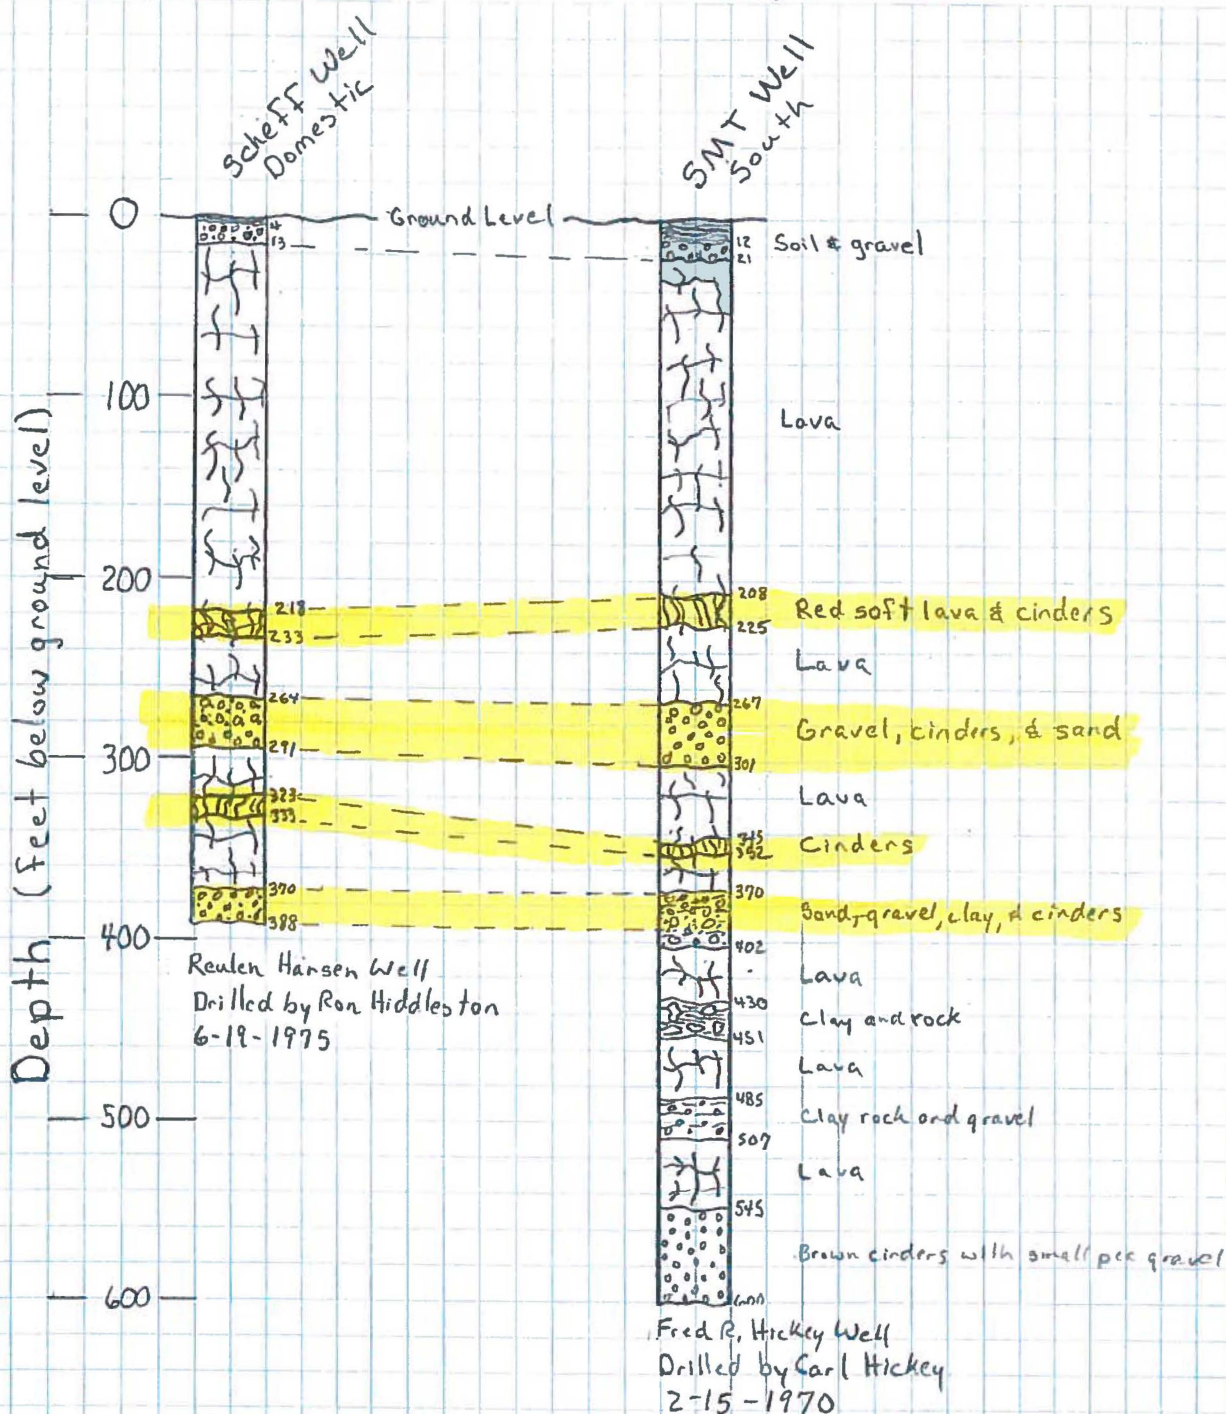 Scheff Well
Domestic
SMT Well
South
Depth (feet below ground level)
0
100
200
300
400
500
600
Ground Level
4
13
218
233
264
291
323
333
370
388
Reulen Hansen Well
Drilled by Ron Hiddleston
6-19-1975
12
21
208
225
267
301
345
352
370
402
430
451
485
507
545
600
Soil & gravel
Lava
Red soft lava & cinders
Lava
Gravel, cinders, & sand
Lava
Cinders
Sand, gravel, clay, & cinders
Lava
Clay and rock
Lava
Clay rock and gravel
Lava
Brown cinders with small pea gravel
Fred R. Hickey Well
Drilled by Carl Hickey
2-15-1970